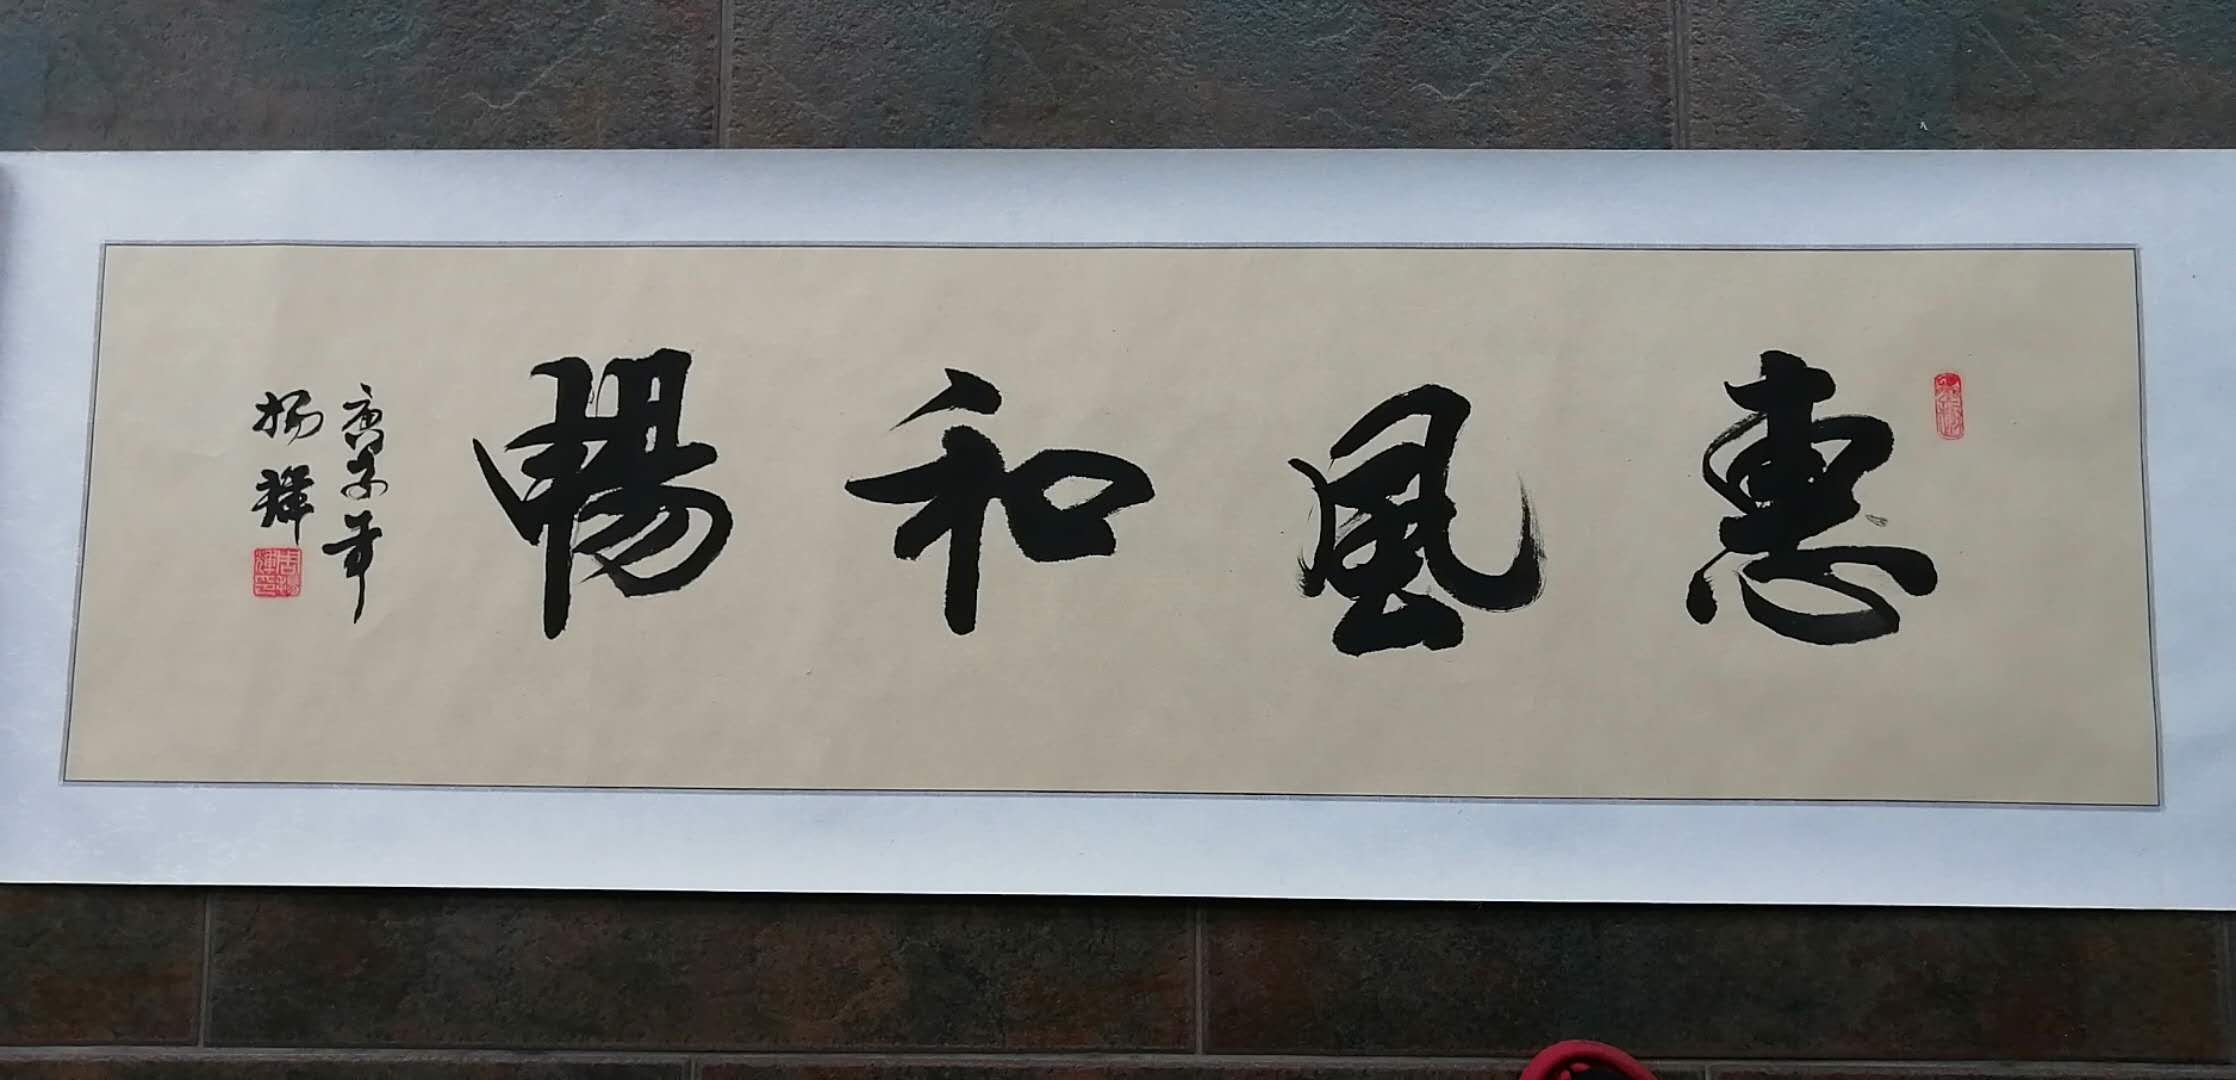 惠風和暢
庚子年
楊輝